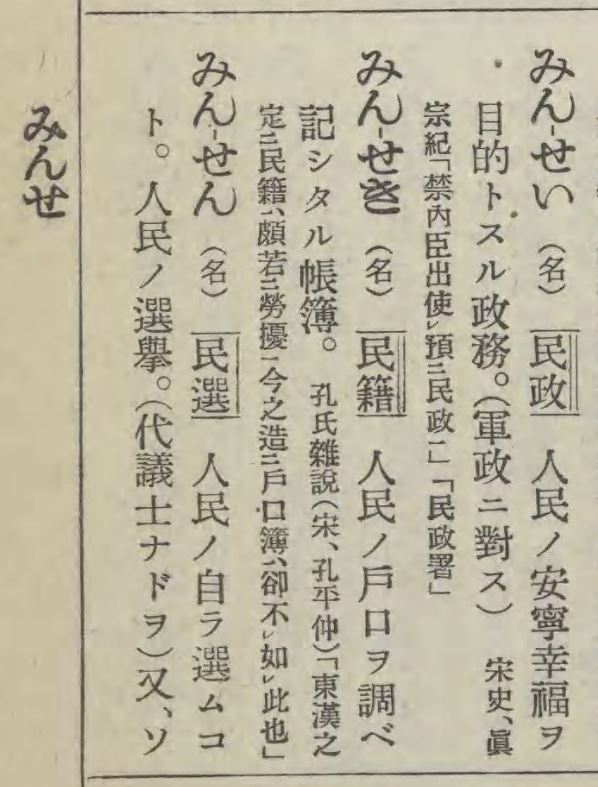 みん-せい（名）民政 人民ノ安寧幸福ヲ
目的トスル政務。（軍政ニ對ス） 宋史、眞
宗紀「禁內臣出使㆑預㆓民政㆒」「民政署」
みん-せき（名）民籍 人民ノ戶口ヲ調べ
記シタル帳簿。 孔氏雜說（宋、孔平仲）「東漢之
定㆓民籍㆒、頗若㆓勞擾㆒今之造㆓戶口簿㆒、卻不㆑如㆑此也」
みん-せん（名）民選 人民ノ自ラ選ムコ
ト。人民ノ選擧。（代議士ナドヲ）又、ソ
みんせ